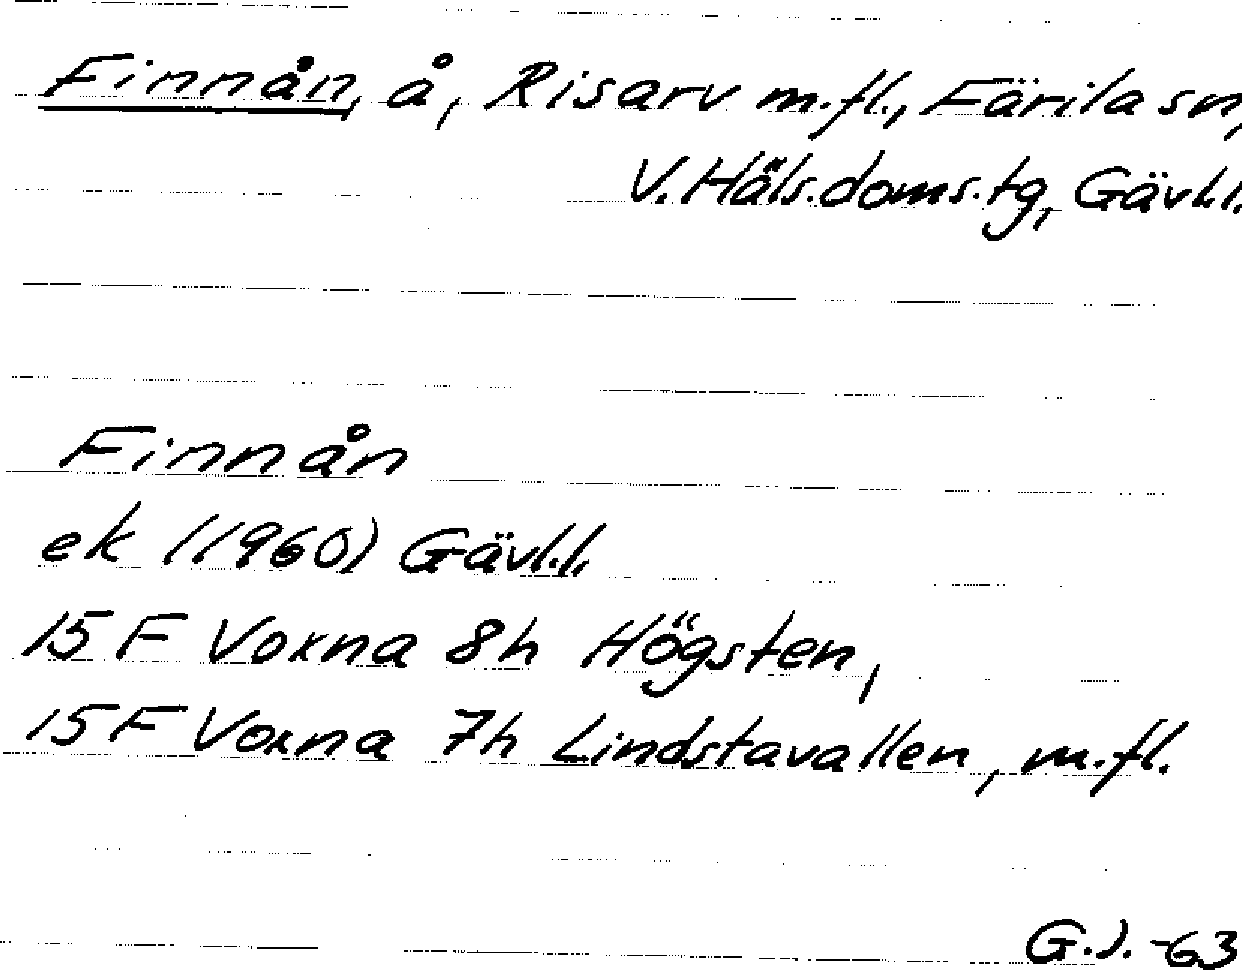 Finnån, å, Risarv m.fl., Färila sn,
V. Häls. doms. tg, Gävl.l.
Finnån
ek (1960) Gävl.l.
15 F Voxna 8h Högsten,
15 F Voxna 7h Lindstavallen, m.fl.
G.J. -63